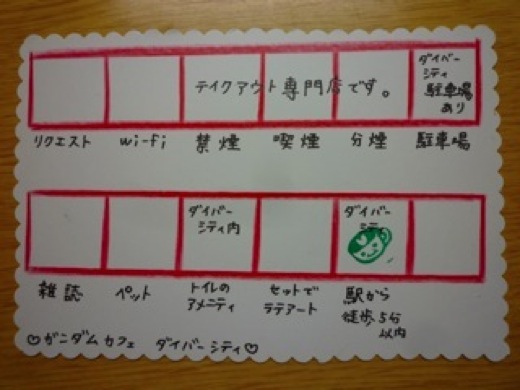 テイクアウト専門店です。
ダイバー
シティ
駐車場
あり
リクエスト wi-fi 禁煙 喫煙 分煙 駐車場
ダイバー
シティ内
ダイバー
シティ
雑誌 ペット トイレの セットで 駅から
アメニティ ラテアート 徒歩5分
以内
♡ガンダムカフェ ダイバーシティ♡